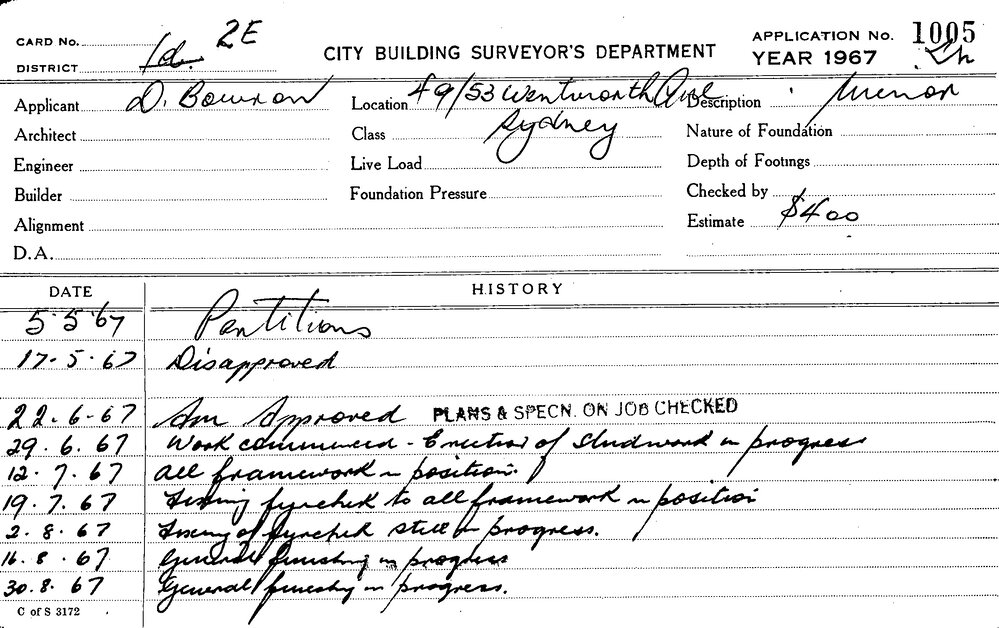 CARD No. 2E
DISTRICT 1d.
CITY BUILDING SURVEYOR'S DEPARTMENT
APPLICATION No. 1005
YEAR 1967
Applicant D. Bowron Location 49/53 Wentworth Ave Description Minor
Architect Class Sydney Nature of Foundation
Engineer Live Load Depth of Footings
Builder Foundation Pressure Checked by
Alignment Estimate $400
D.A.
DATE HISTORY
5.5.67 Partitions
17.5.67 Disapproved
22.6-67 Am Approved PLANS & SPECN. ON JOB CHECKED
29.6.67 Work commenced - Erection of studwork in progress
12.7.67 All framework in position.
19.7.67 Fixing fyrchek to all framework in position
2.8.67 Fixing of fyrchek still in progress.
16.8.67 General finishing in progress
30.8.67 General finishing in progress.
C of S 3172